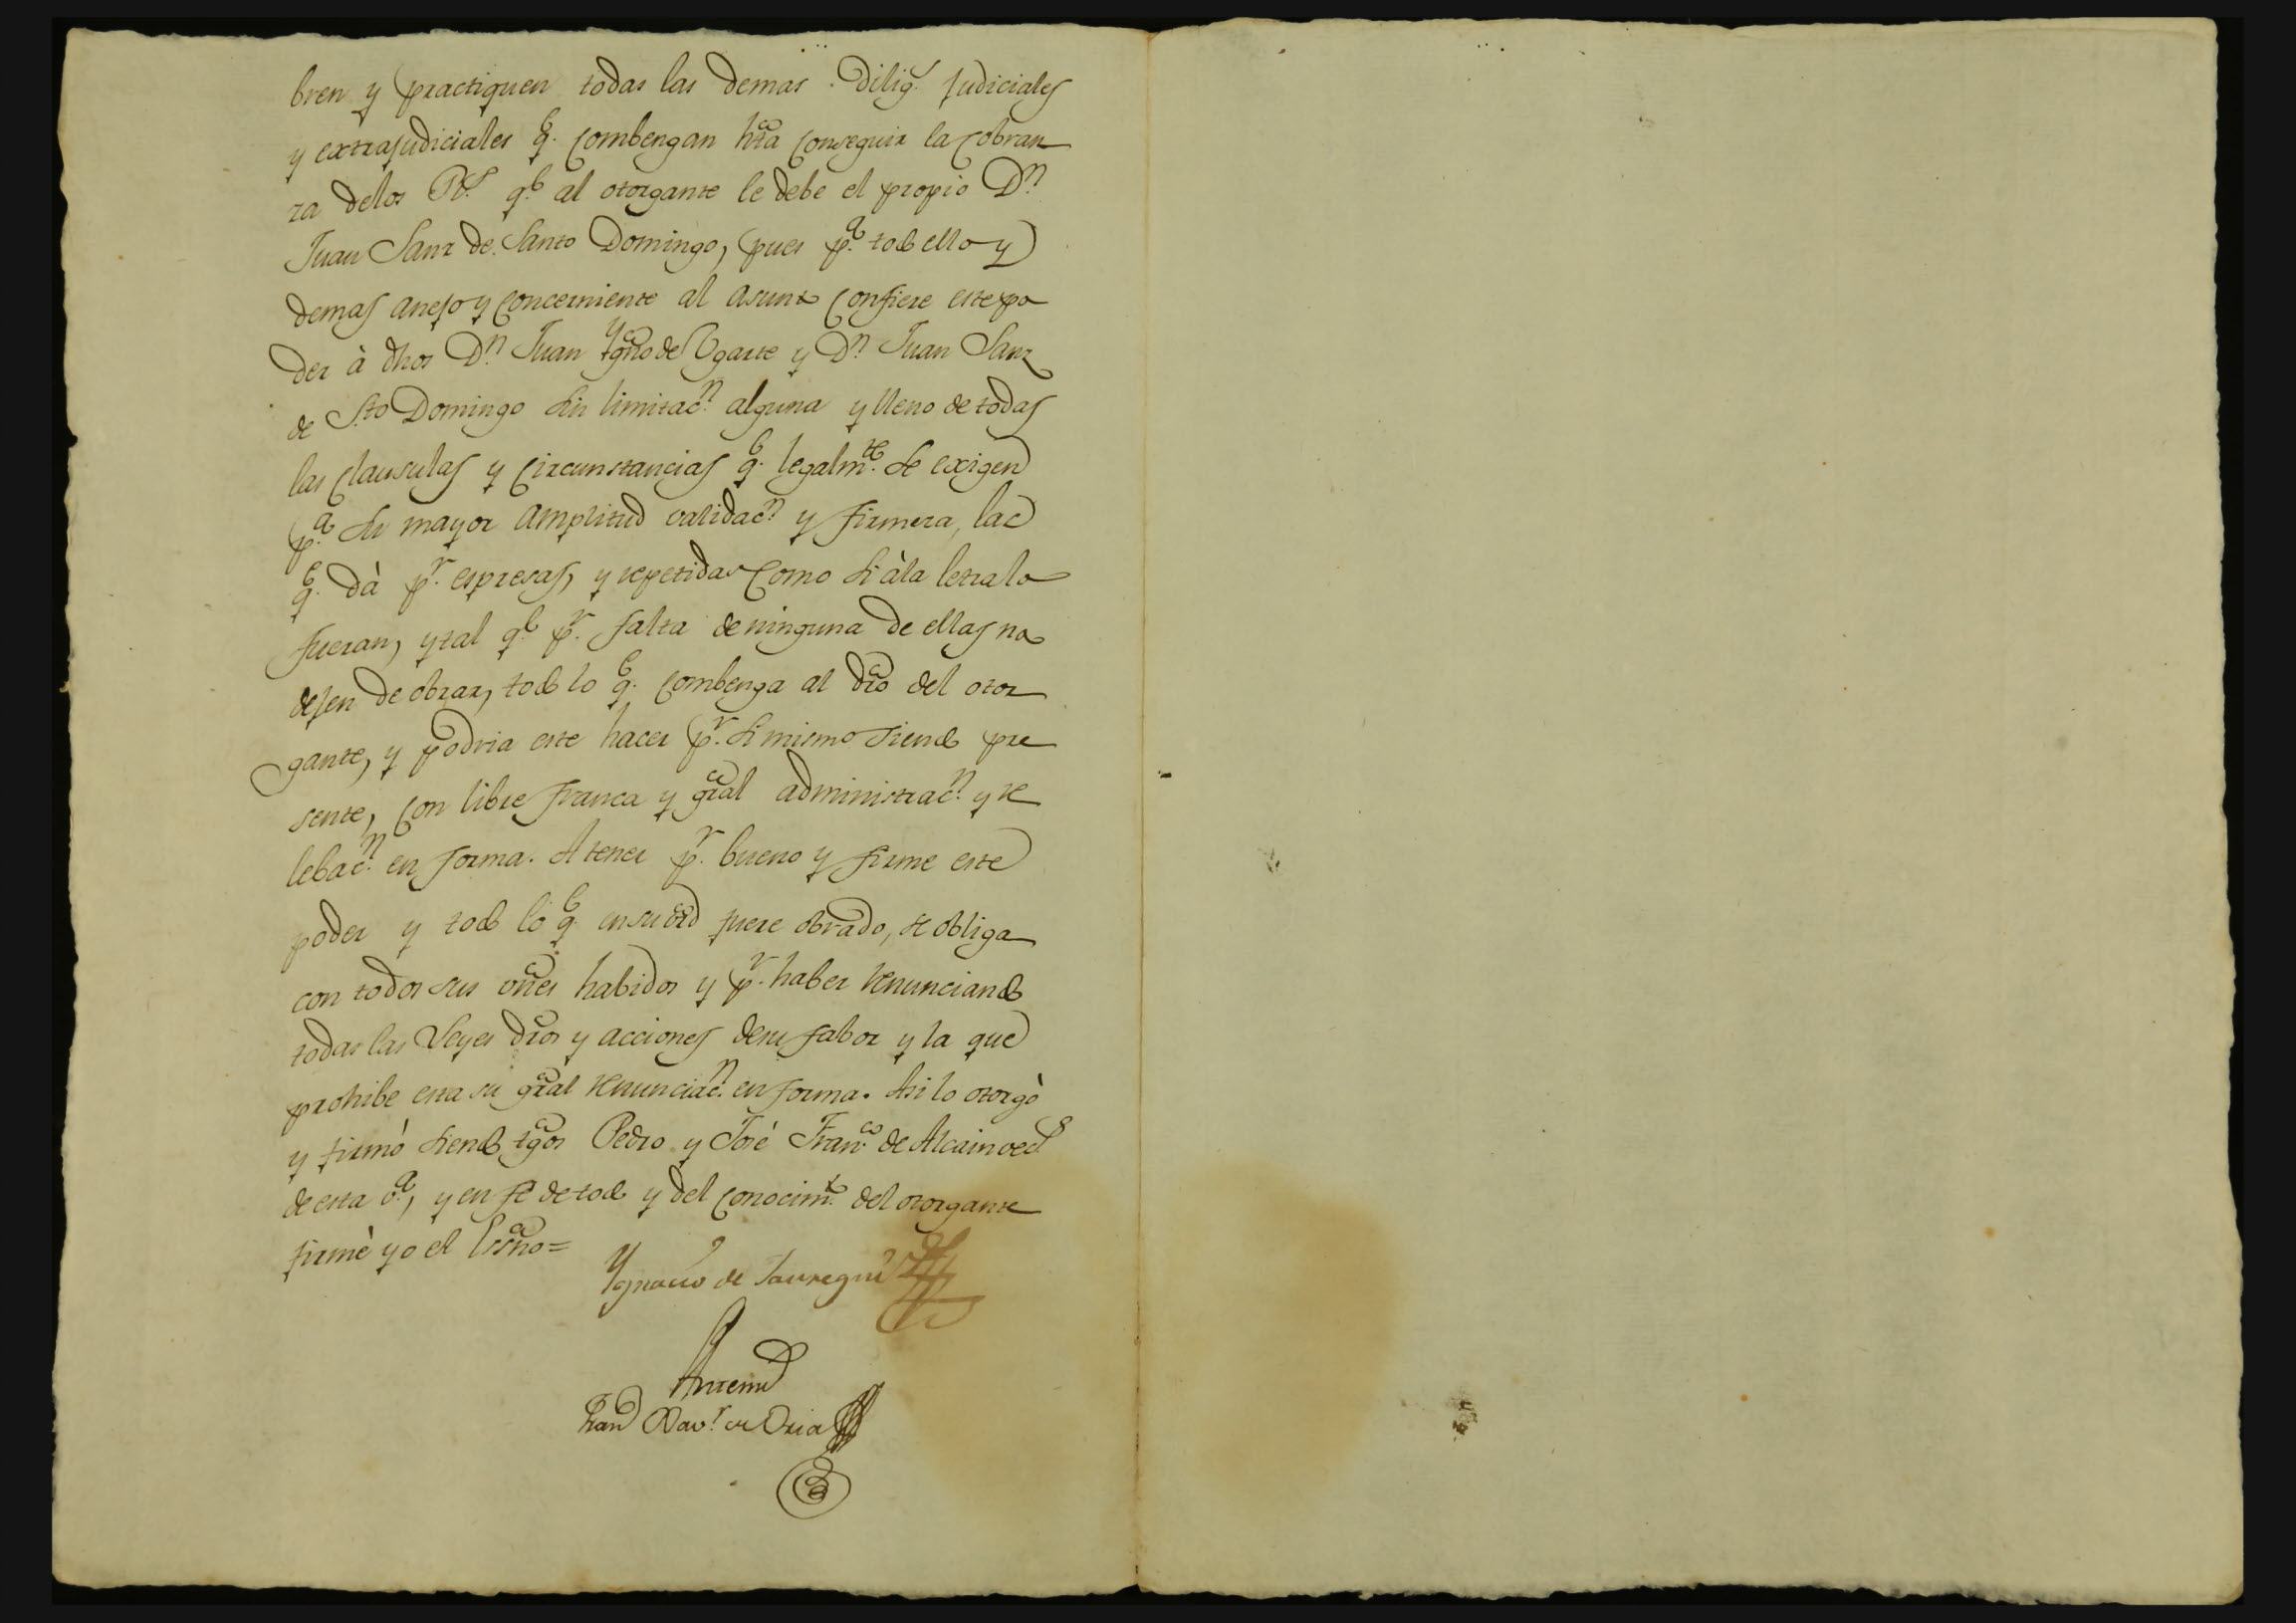 bren y practiquen todas las demas Dilig.s Judiciales
y extrajudiciales q.e combengan hta conseguir la cobran
za delos R.s q.e al otorgante le debe el propio D.n
Juan Sanz de Santo Domingo, pues p.a todo ello y
demas anejo y concerniente al asunto confiere este po
der à dhos D.n Juan Ygno de Ugarte y D.n Juan Sanz
de Sto Domingo sin limitac.n alguna y lleno de todas
las clausulas y circunstancias q.e legalm.te se exigen
p.a su mayor amplitud validac.n y firmeza, las
q.e dà p.r espresas, y repetidas como si àla letra lo
fueran, y tal q.e p.r falta de ninguna de ellas no
dejen de obrar, todo lo q.e combenga al dro del otor
gante, y podria este hacer p.r si mismo siendo pre
sente, con libre franca y gral administrac.n y re
lebac.n en forma. A tener p.r bueno y firme este
poder y todo lo q.e en su vrd fuere obrado, se obliga
con todos sus vnes habidos y p.r haber renunciando
todas las Leyes dros y acciones de su fabor y la que
prohibe esta su gral renunciac.n en forma. Asi lo otorgò
y firmò siendo tgos Pedro y José Fran.co de Alcain vec.s
de esta v.a, y en fe de todo y del conocim.to del otorgante
firmè yo el Essno=
Ygnacio de Jauregui
Antemi
Fran Xav.r de Oria